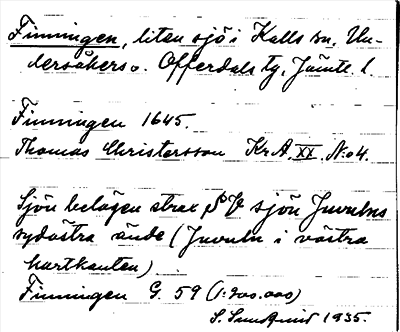 Finningen, liten sjö i Kalls sn, Un-
dersåkers o. Offerdals tg, Jämtl. l.
Finningen 1645.
Thomas Christersson Kr A. XX. No 4.
Sjön belägen strax SV sjön Juvulns
sydöstra ände (Juvuln i västra
kartkanten)
Finningen G. 59 (1:200.000)
S. Sundqvist 1935.